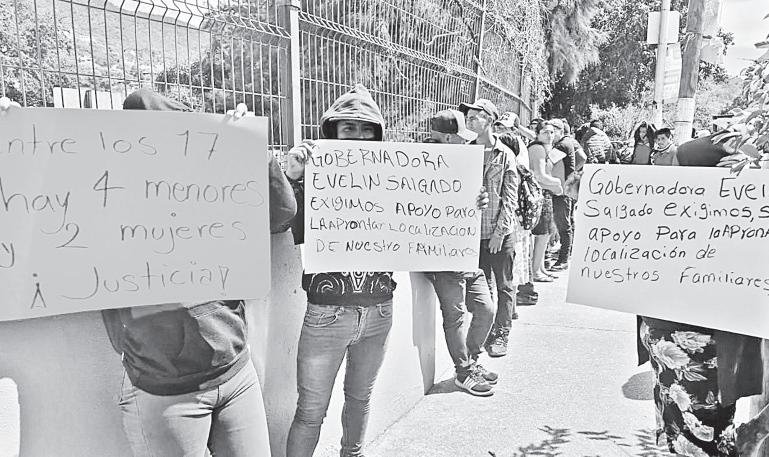 entre los 17
hay 4 menores
y 2 mujeres
¡Justicia!
GOBERNADORA
EVELIN SALGADO
EXIGIMOS APOYO PARA
LA APRONTAR LOCALIZACION
DE NUESTRO FAMILIARE
Gobernadora Eveli
Salgado exigimos, s
apoyo Para la APron
localización de
nuestros Familiares